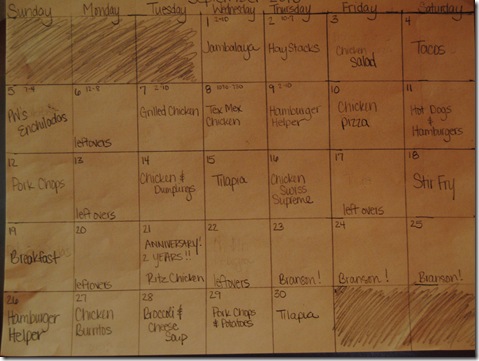 September 2010
Sunday Monday Tuesday Wednesday Thursday Friday Saturday
1
Jambalaya
2
Hay Stacks
3
Chicken
Salad
4
Tacos
5 7-8
Enchiladas
6
leftovers
7
Grilled Chicken
8
Tex Mex
Chicken
9
Hamburger
Helper
10
Chicken
Pizza
11
Hot Dogs
&
Hamburgers
12
Pork Chops
13
leftovers
14
Chicken &
Dumplings
15
Tilapia
16
Chicken
Swiss
Supreme
17
leftovers
18
Stir Fry
19
Breakfast
20
leftovers
21
ANNIVERSARY!
2 YEARS!!
Ritz Chicken
22
leftovers
23
Branson!
24
Branson!
25
Branson!
26
Hamburger
Helper
27
Chicken
Burritos
28
Broccoli &
Cheese
Soup
29
Pork Chops
& Potatoes
30
Tilapia